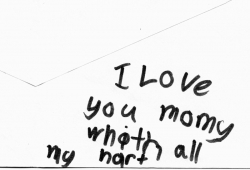 I Love
you momy
whith all
my hart